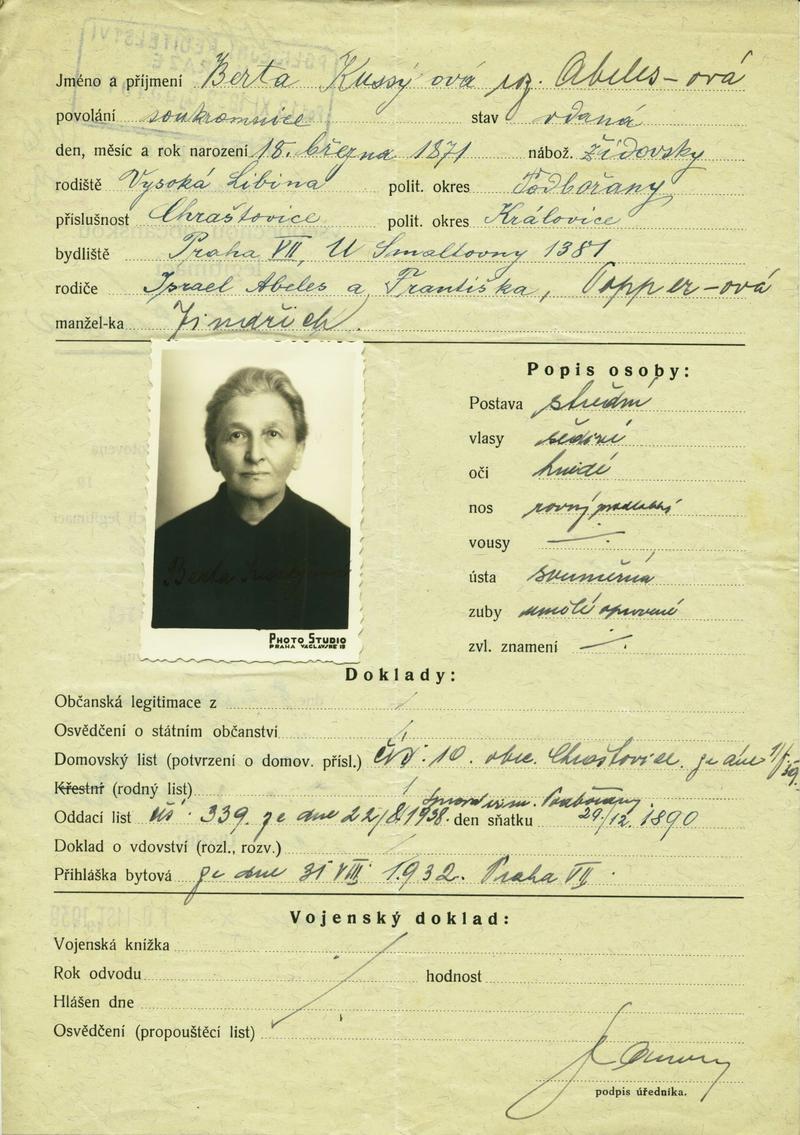 Jméno a příjmení Berta Kussý ová roz. Abeles-ová
povolání soukromnice stav vdaná
den, měsíc a rok narození 18. března 1871 nábož. židovsky
rodiště Vysoká Libina polit. okres Podbořany
příslušnost Chraštovice polit. okres Kralovice
bydliště Praha VII, U Smaltovny 1381
rodiče Israel Abeles a Františka, Popper-ová
manžel-ka Jindřich.
Popis osoby:
Postava střední
vlasy šedivé
oči hnědé
nos rovný
vousy
ústa souměrná
zuby umělé
zvl. znamení
PHOTO STUDIO
PRAHA VÁCLAVSKÉ
Doklady:
Občanská legitimace z
Osvědčení o státním občanství
Domovský list (potvrzení o domov. přísl.) čís. 10. obec. Chraštovice. ze dne
Křestní (rodný list)
Oddací list čís. 339. ze dne 22/8. 1938. den sňatku 29/12. 1890
Doklad o vdovství (rozl., rozv.)
Přihláška bytová ze dne 31 VIII 1932. Praha VII.
Vojenský doklad:
Vojenská knížka
Rok odvodu hodnost
Hlášen dne
Osvědčení (propouštěcí list)
podpis úředníka.